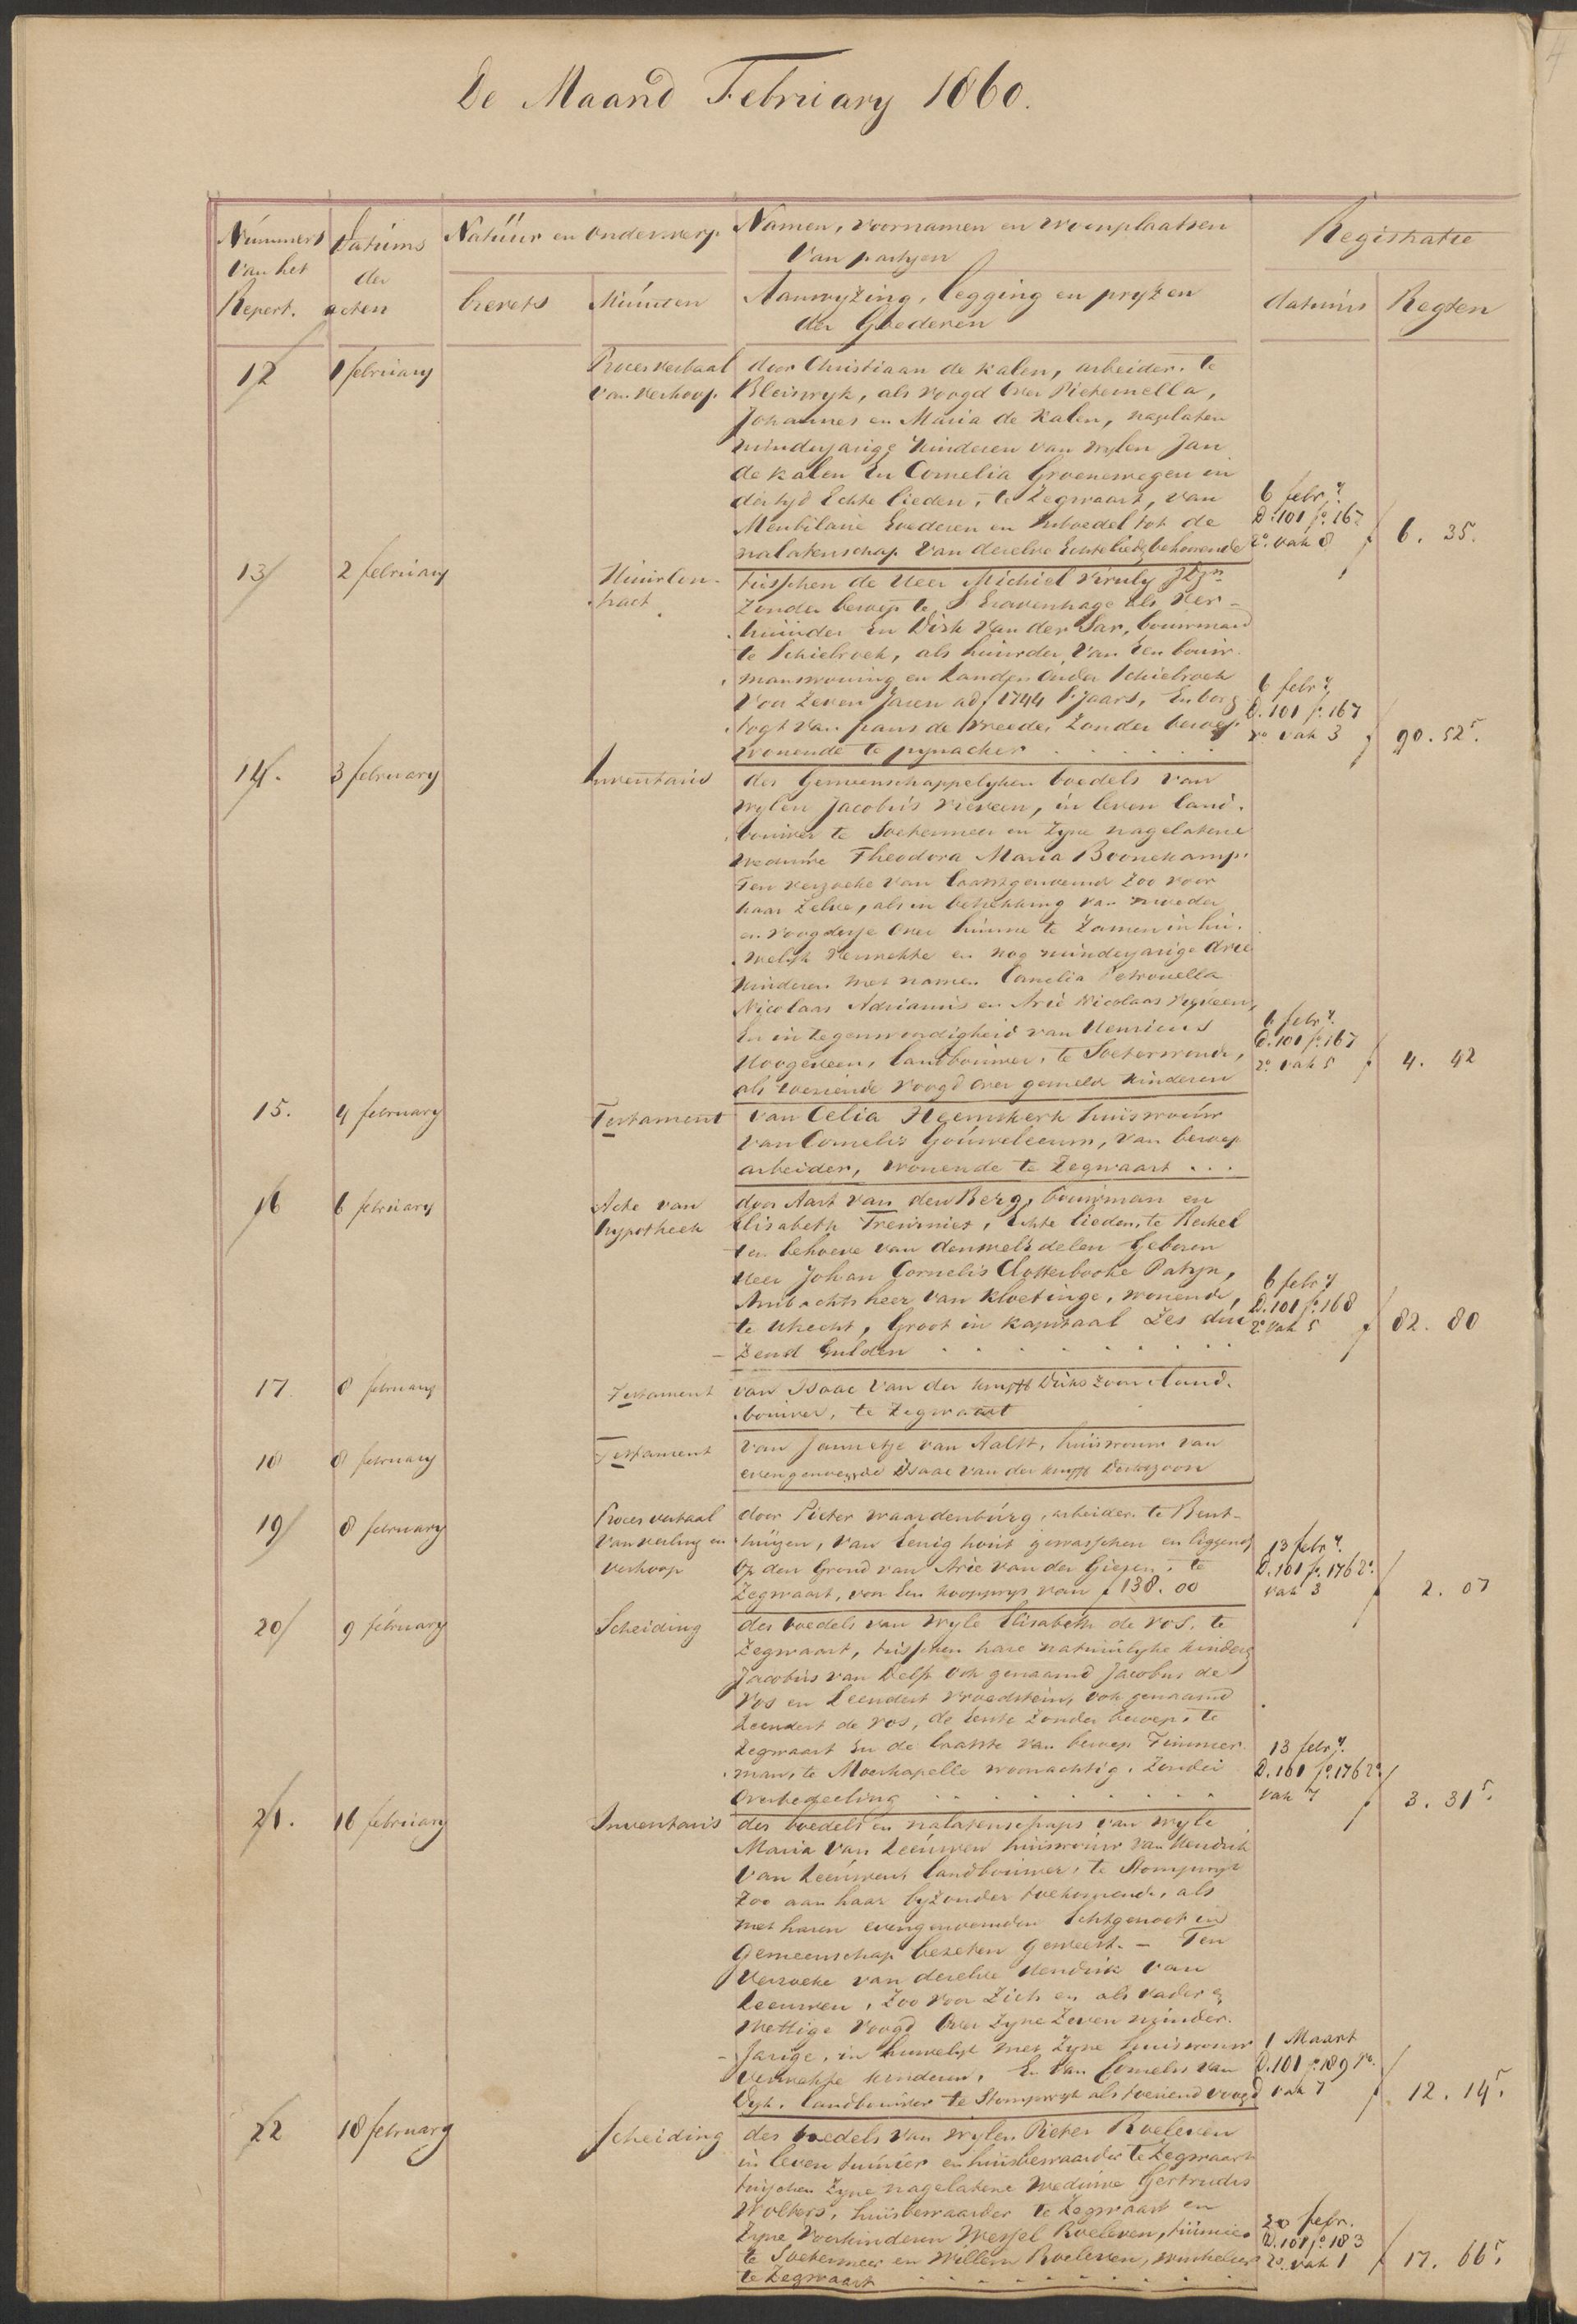 De Maand February 1860.
Nummers van het Repert.
Datums der acten
Natuur en onderwerp
brevets
Minuten
Namen, voornamen en woonplaatsen
van partyen
Aanwyzing, legging en pryzen
der Goederen
Registratie
datums
Regten
12
1 february
Proces verbaal
van verkoop
door Christiaan de Kalen, arbeider, te
Bleiswyk, als voogd over Pieternella,
Johannes en Maria de Kalen, nagelaten
minderjarige kinderen van wylen Jan
de Kalen en Cornelia Groenewegen in
der tyd Echte lieden, te Zegwaart, van
Meubilaire Goederen en Inboedel tot de
nalatenschap van dezelve Echtelied. behoorende
6 febr.y
D. 101 fo. 167
ro. vak 8
f 6. 35.
13
2 february
Huurcon-
tract
tusschen de Heer Michiel Viruly Jbzn
Zonder beroep te S Gravenhage als ver-
huurder En Dirk van der Sar, bouwman
te Schiebroek, als huurder, van Een bouw-
manswoning en Landen onder Schiebroek
voor Zeven Jaren ad f 1744 's jaars, En borg
togt van frans de Vreede, Zonder beroep
wonende te pynacker . . . . . .
6 febr.y
D. 101 fo. 167
vo vak 3
f 90. 52 5.
14.
3 february
Inventaris
des Gemeenschappelyken boedels van
wylen Jacobus Vieveen, in leven land-
bouwer te Soetermeer en Zyne nagelatene
weduwe Theodora Maria Boonekamp.
Ten verzoeke van laastgenoemd Zoo voor
haar Zelve, als in betrekking van moeder
en voogdesse over hunne te Zamen in hu-
welyk verwekte en nog minderjarige drie
kinderen met namen Cornelia Petronella
Nicolaas Adrianus en Arie Nicolaas Vieveen,
En in tegenwoordigheid van Henricus
Hoogeveen, landbouwer, te Soeterwoude,
als toeziende voogd over gemelde kinderen
6 febr.y
D. 101 fo. 167
vo. vak 5
f 4. 42
15.
4 february
Testament
van Celia Heemskerk huisvrouw
van Cornelis Gouweleeuw, van beroep
arbeider, wonende te Zegwaart . . .
16
6 february
Acte van
hypotheek
door Aart van den Berg, bouwman en
Elisabeth Treurniet, Echte lieden, te Berkel
ten behoeve van denweledelen Geboren
Heer Johan Cornelis Clotterbooke Patyn,
Ambachtsheer van Kloetinge, wonende,
te Utrecht, Groot in kapitaal Zes dui
- Zend Gulden . . . . . . . .
6 febr.y
D. 101 fo. 168
ro. vak 5
f 82. 80
17.
8 february
Testament
van Isaac van der kruyff Dirkszoon, Land-
bouwer, te Zegwaart
18
8 february
Testament
van Jannetje van Aalst, huisvrouw van
evengenoemde Isaac van der kruyff Dirkszoon
19
8 february
Proces verbaal
van veiling en
verkoop
door Pieter waardenburg, arbeider te Bent-
huizen, van Eenig hout gewasschen en liggende
Op den Grond van Arie van der Giesen, te
Zegwaart, voor Een koopprys van f 138. 00
13 febr.y
D. 101 fo. 176 ro.
vak 3
f 2. 07
20
9 february
Scheiding
des boedels van wyle Elisabeth de Vos, te
Zegwaart, tusschen hare natuurlyke kinders
Jacobus van Delft ook genaamd Jacobus de
Vos en Leendert Vroedstein, ook genaamd
Leendert de Vos, de Eerste Zonder beroep, te
Zegwaart En de laatste van beroep Timmer-
man, te Moerkapelle woonachtig. Zonder
overbedeeling . . . . . . . .
13 febr.y
D. 101 fo. 176 ro
vak 7
f 3. 31 5.
21.
16 february
Inventaris
des boedels en nalatenschaps van wyle
Maria van Leeuwen huisvrouw van Hendrik
van Leeuwen, landbouwer, te Stompwyk
Zoo aan haar byzonder toekomende, als
met haren evengenoemden Echtgenoot in
Gemeenschap bezeten Geweest. - Ten
Verzoeke van dezelve Hendrik van
Leeuwen, Zoo voor Zich en als vader en
Wettige Voogd over Zyne Zeven minder-
- Jarige, in huwelyk met Zyne huisvrouw
verwekte kinderen, En van Cornelis van
Dyk, landbouwer te Stompwyk als toeziend voogd
1 Maart
D. 101 fo. 189 vo.
vak 7
f 12. 14 5.
22
18 february
Scheiding
des boedels van wylen Pieter Roeleven
in leven tuinier en huisbewaarder te Zegwaart
tusschen Zyne nagelatene weduwe Gertrudes
Wolters, huisbewaarder te Zegwaart en
Zyne Voorkinderen Wessel Roeleven, tuinier
te Soetermeer en Willem Roeleven, winkelier
te Zegwaart . . . . . . . .
20 febr.
D. 101 fo. 183
ro. vak 1
f 17. 66 5.
4